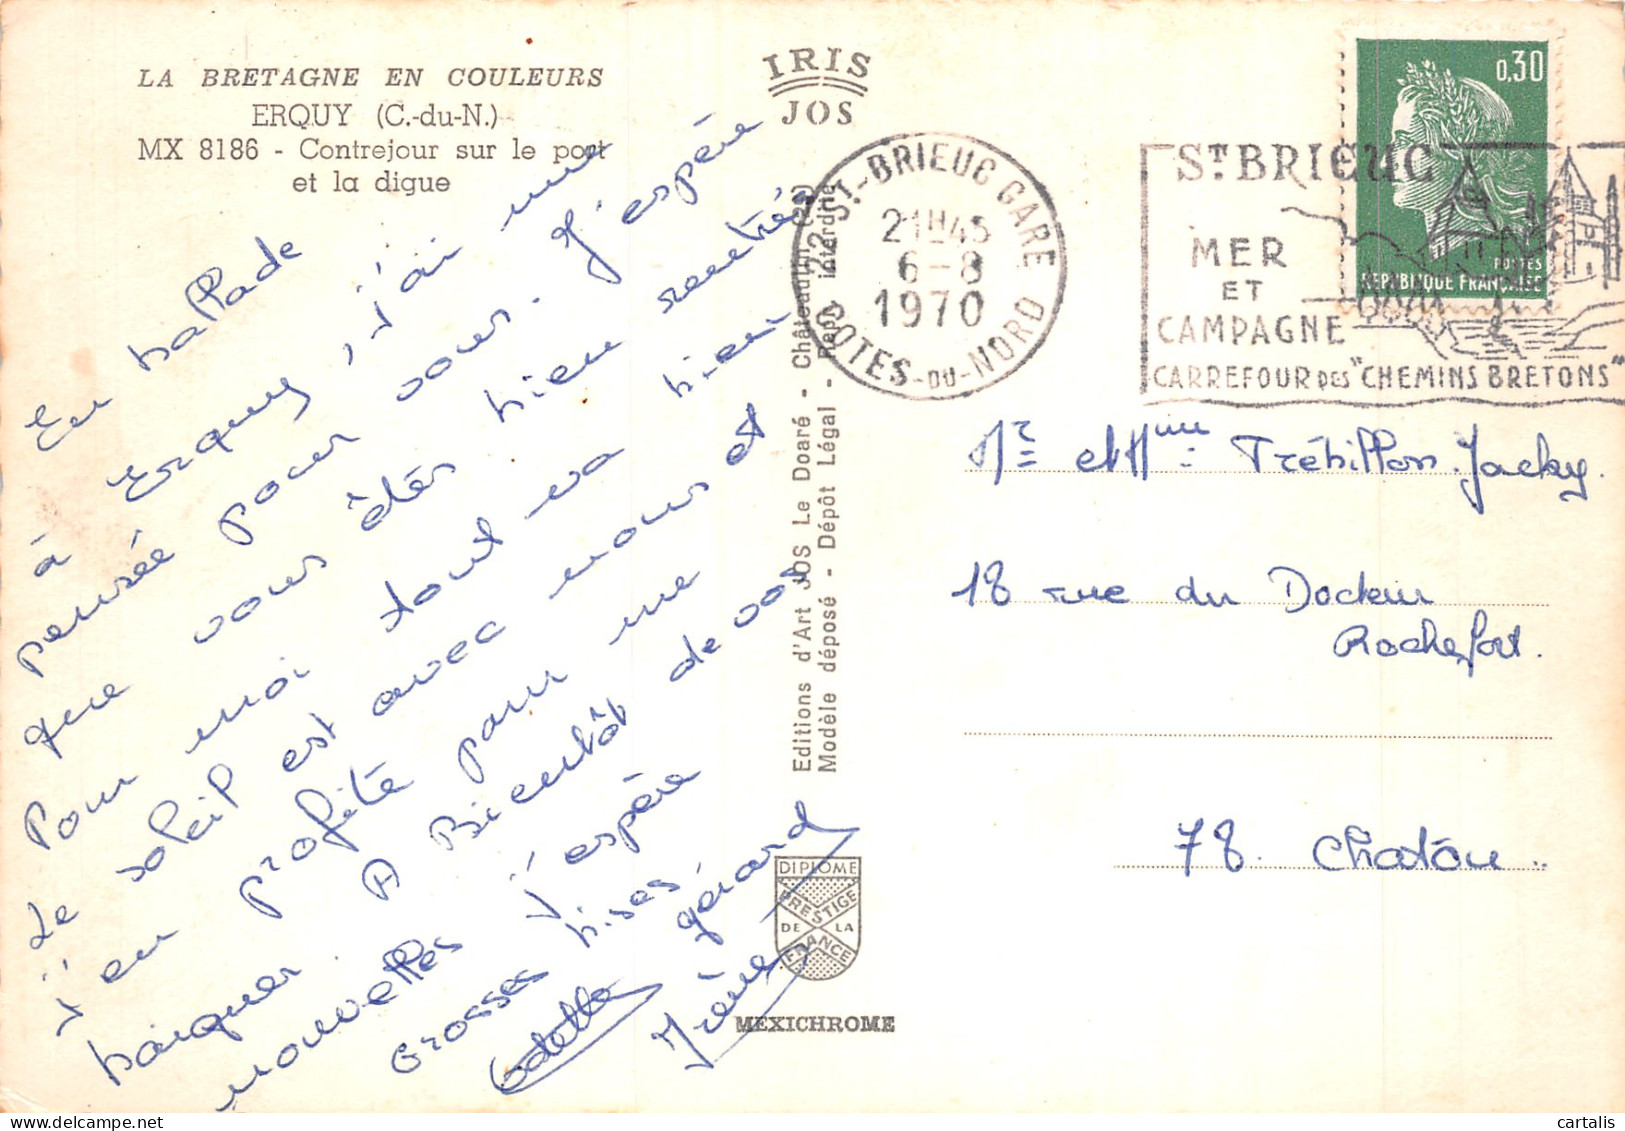 LA BRETAGNE EN COULEURS
ERQUY (C.-du-N.)
MX 8186 - Contrejour sur le port
et la digue
IRIS
JOS
En ballade
à Erquy, j'ai une
pensée pour vous. J'espère
que vous êtes bien rentrés
Pour moi tout va bien
Le soleil est avec nous et
j'en profite pour me
baigner. A Bientôt de vos
nouvelles j'espère
Grosses bises
Gérard
Odette
Irène
Editions d'Art JOS Le Doaré - Châteaulin
Modèle déposé - Dépôt Légal - Repr. interdite
DIPLOME
PRESTIGE
DE LA
FRANCE
MEXICHROME
22 ST-BRIEUC GARE
21H45
6-8
1970
COTES-DU-NORD
ST BRIEUC
MER
ET
CAMPAGNE
CARREFOUR DES "CHEMINS BRETONS"
0,30
POSTES
REPUBLIQUE FRANÇAISE
Mr et Mme Trébillon Jacky.
18 rue du Docteur
Rochefort.
78. Chatou
cartalis
delcampe.net